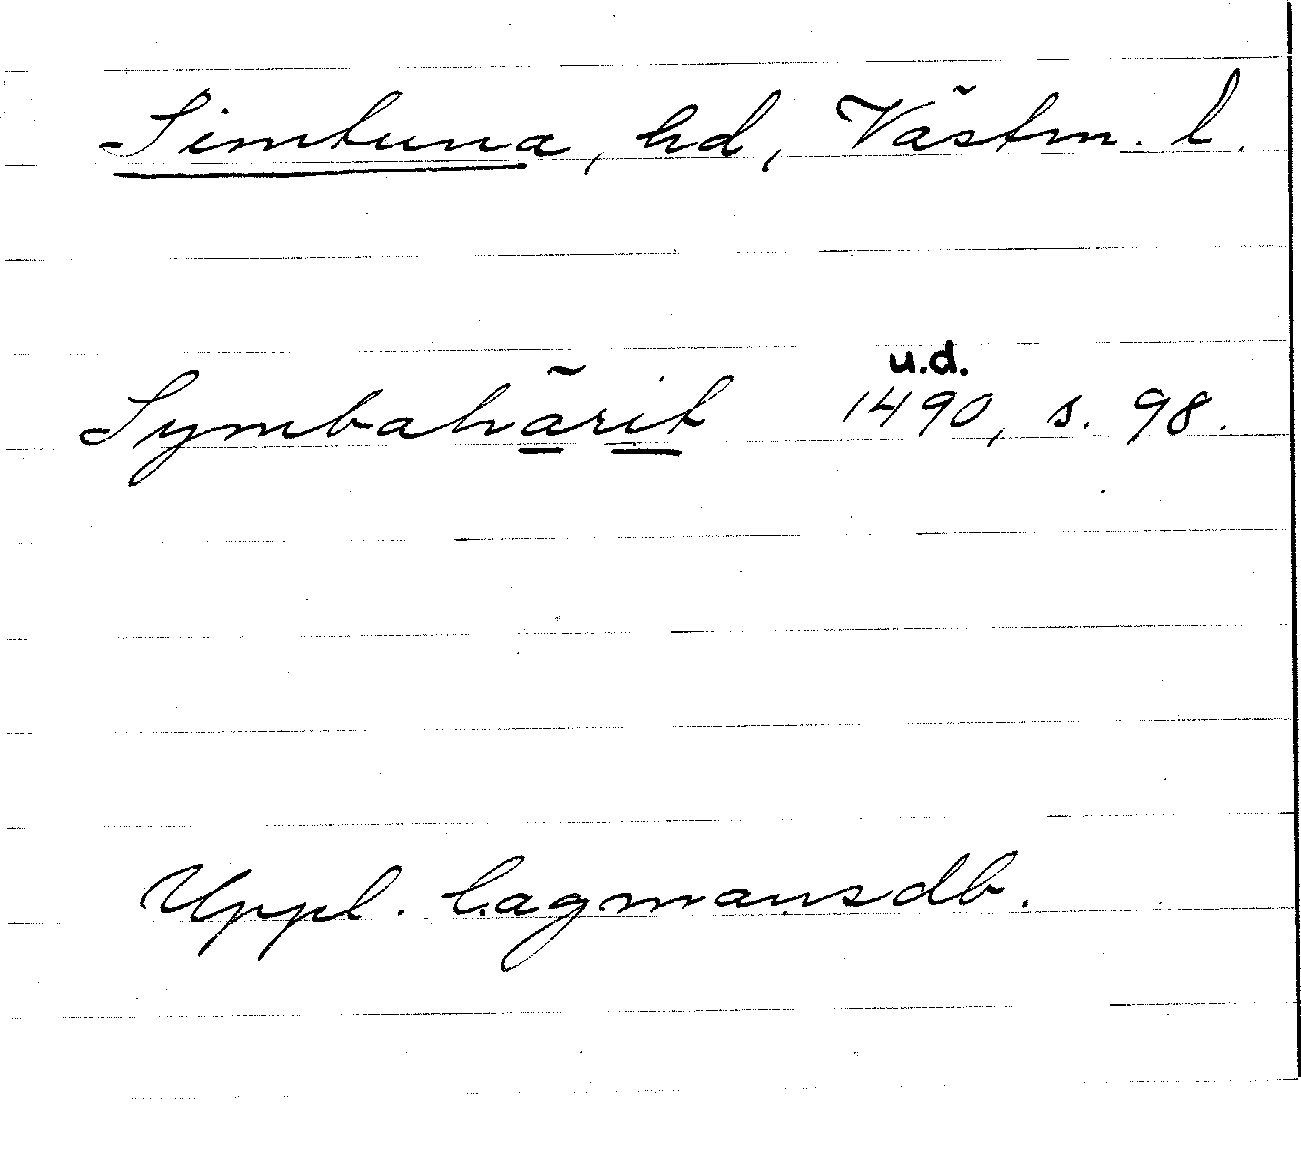 Simtuna, hd, Västm. l.
u.d.
Symbahärit 1490, s. 98.
Uppl. lagmansdb.